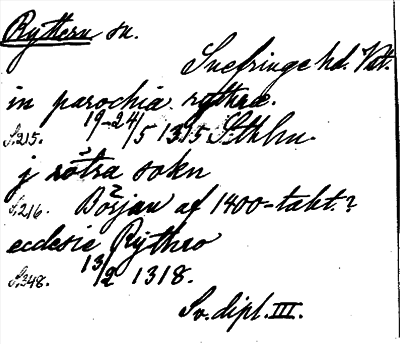 Ryttern sn.
Snefringe hd. Vstm.
in parochia rythræ.
S.215. 19-24/5 1315 Sthlm.
j røtra sokn
S.216. Början af 1400-talet.?
ecclesie Rythro
S.348. 13/2 1318.
Sv. dipl. III.